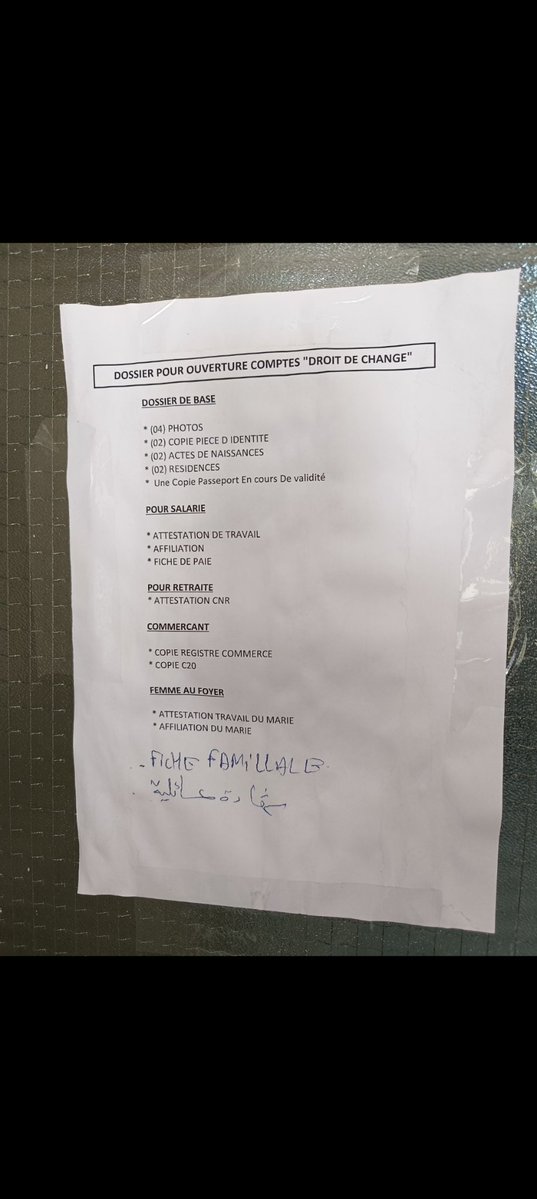 DOSSIER POUR OUVERTURE COMPTES "DROIT DE CHANGE"
DOSSIER DE BASE
* (04) PHOTOS
* (02) COPIE PIECE D IDENTITE
* (02) ACTES DE NAISSANCES
* (02) RESIDENCES
* Une Copie Passeport En cours De validité
POUR SALARIE
* ATTESTATION DE TRAVAIL
* AFFILIATION
* FICHE DE PAIE
POUR RETRAITE
* ATTESTATION CNR
COMMERCANT
* COPIE REGISTRE COMMERCE
* COPIE C20
FEMME AU FOYER
* ATTESTATION TRAVAIL DU MARIE
* AFFILIATION DU MARIE
- FICHE FAMILLALE.
شهادة عائلية